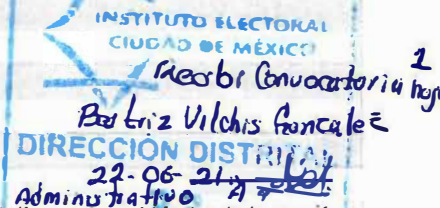 INSTITUTO ELECTORAL
CIUDAD DE MÉXICO
1
Recibi Convocatoria hoja
Beatriz Vilchis Gonzalez
DIRECCIÓN DISTRITAL
22-06-21
Administrativo